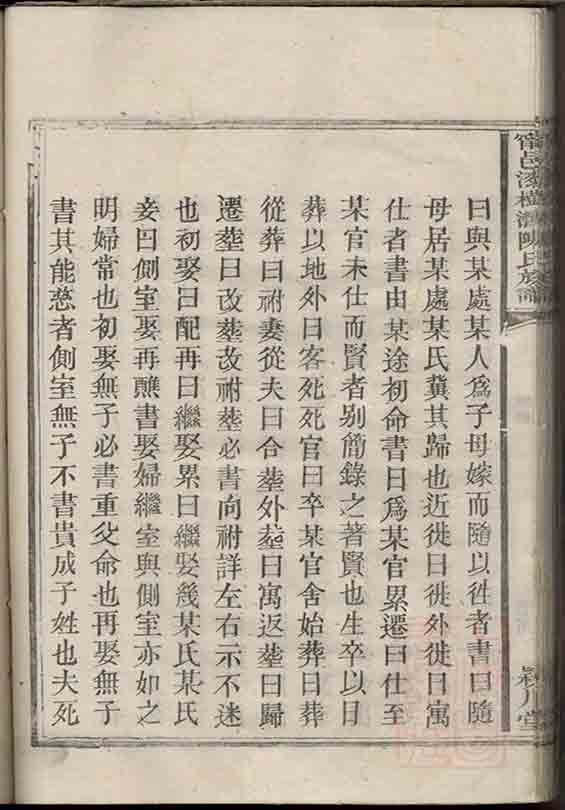 甯邑漆樹灣陳氏族譜
潁川堂
曰與某處某人爲子母嫁而隨以徃者書曰隨
母居某處某氏冀其歸也近徙曰徙外徙曰寓
仕者書由某途初命書曰爲某官累遷曰仕至
某官未仕而賢者别簡錄之著賢也生卒以日
葬以地外曰客死死官曰卒某官舍始葬曰葬
從葬曰祔妻從夫曰合塟外塟曰寓返塟曰歸
遷塟曰改塟改祔塟必書向祔詳左右示不迷
也初娶曰配再曰繼娶累曰繼娶幾某氏某氏
妾曰側室娶再醮書娶婦繼室與側室亦如之
明婦常也初娶無子必書重父命也再娶無子
書其能慈者側室無子不書貴成子姓也夫死